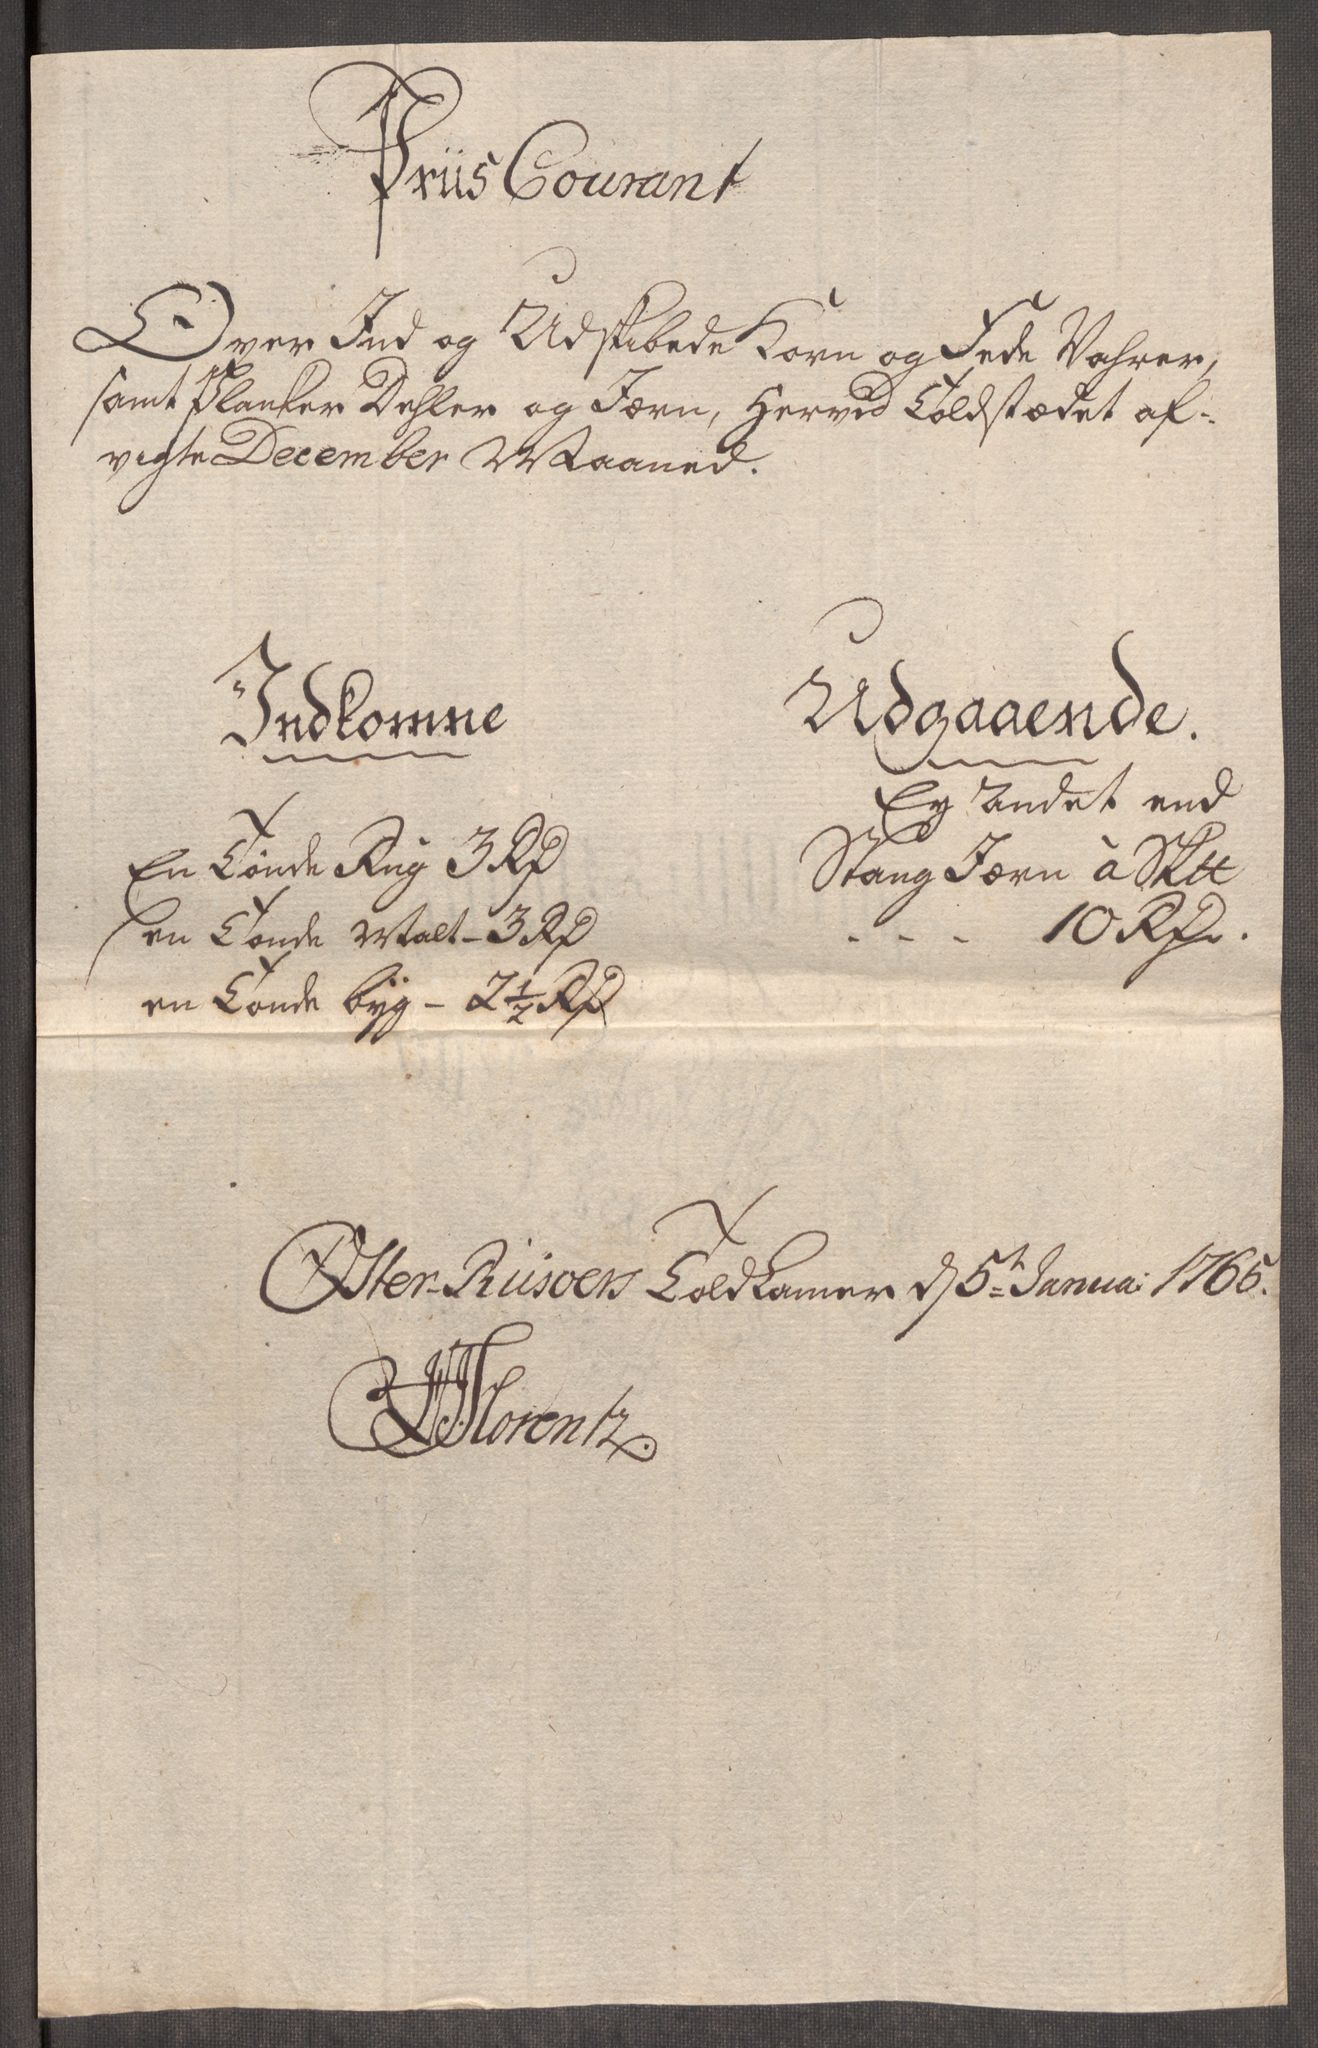 Priis Courant
Over Ind og Udskibede Korn og Fede Vahrer,
samt Planker Dehler og Jærn, Hervid Toldstædet af-
vigte December Maaned.
Indkomne
En Tönde Rug 3 Rd
en Tönde Malt - 3 Rd
en Tönde byg - 2 1/2 Rd
Udgaaende.
Ey andet end
Stang Jærn à Sktt
- - - 10 Rd.
Öster-Riisöers Toldkamer d 5te Janua: 1765.
Florentz